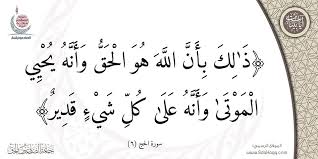 ﴿ذَٰلِكَ بِأَنَّ اللَّهَ هُوَ الْحَقُّ وَأَنَّهُ يُحْيِي
الْمَوْتَىٰ وَأَنَّهُ عَلَىٰ كُلِّ شَيْءٍ قَدِيرٌ﴾
سورة الحج (٦)